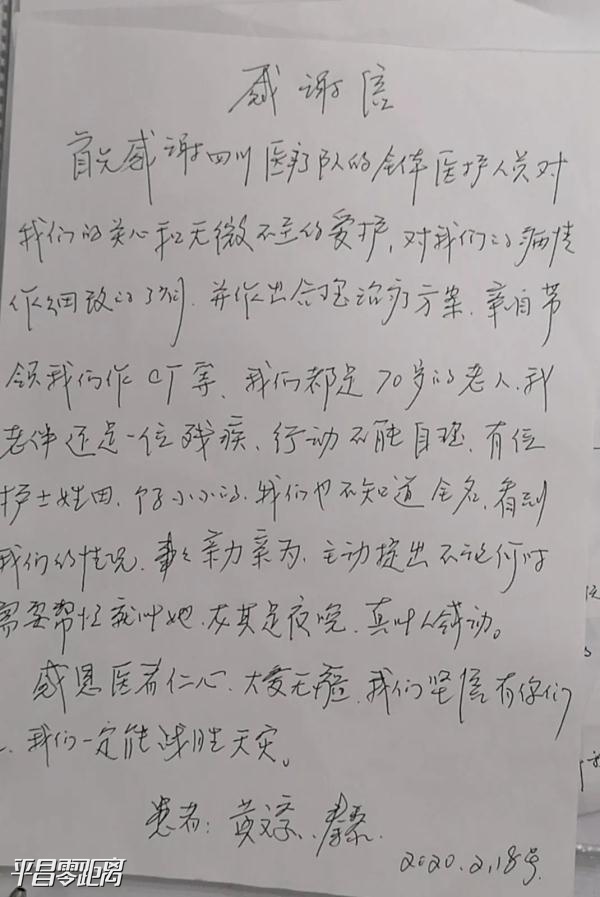 感谢信
首先感谢四川医疗队的全体医护人员对
我们的关心和无微不至的爱护，对我们的病情
作细致的了解．并作出合理治疗方案．亲自带
领我们作CT等、我们都是70岁的老人．我
老伴还是一位残疾、行动不能自理．有位
护士姓田．个子小小的．我们也不知道全名．看到
我们的情况．事事亲力亲为．主动提出不论何时
需要帮忙就叫她．尤其是夜晚．真叫人感动。
感恩医者仁心．大爱无疆．我们坚信有你们
、我们一定能战胜天灾。
患者：黄
2020.2.18号.
平昌零距离